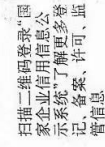 扫描二维码登录“国
家企业信用信息公
示系统”了解更多登
记、备案、许可、监
管信息